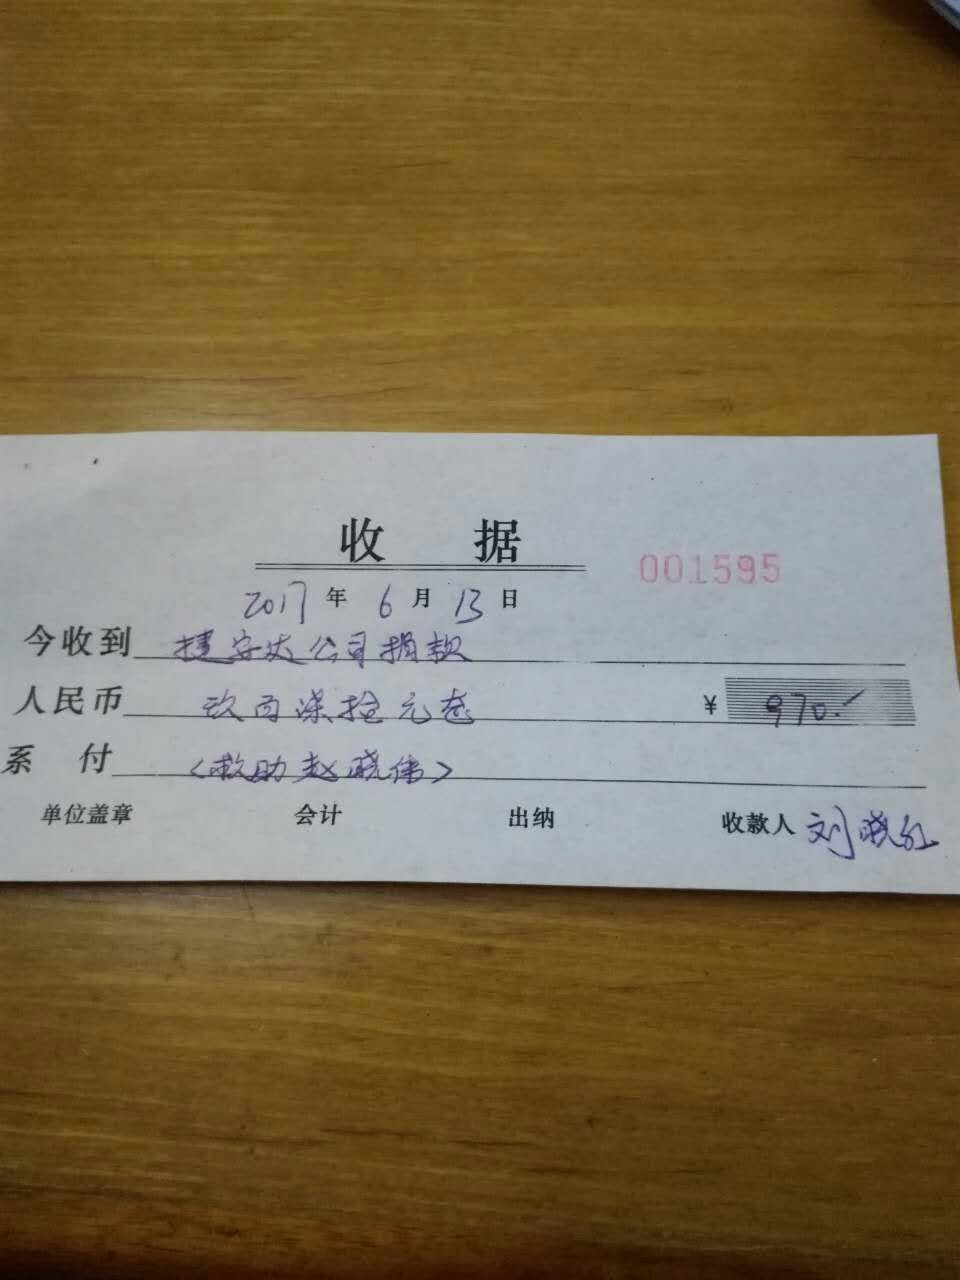 收据
001595
2017年6月13日
今收到 捷安达公司捐款
人民币 玖百柒拾元整 ¥ 970.-
系付 (救助赵晓伟)
单位盖章 会计 出纳 收款人 刘晓红